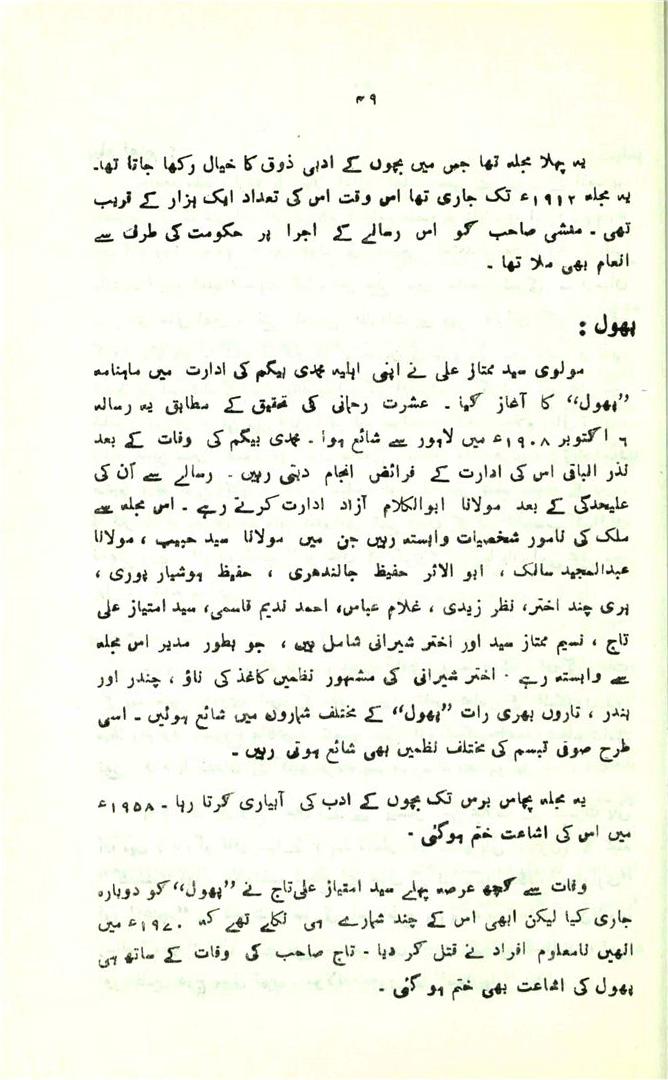 ۴۹
یہ پہلا مجلہ تھا جس میں بچوں کے ادبی ذوق کا خیال رکھا جاتا تھا۔
یہ مجلہ ۱۹۱۲ء تک جاری تھا اس وقت اس کی تعداد ایک ہزار کے قریب
تھی ۔ منشی صاحب کو اس رسالے کے اجرا پر حکومت کی طرف سے
انعام بھی ملا تھا ۔
پھول :
مولوی سید ممتاز علی نے اپنی اہلیہ محمدی بیگم کی ادارت میں ماہنامہ
”پھول“ کا آغاز کیا ۔ عشرت رحمانی کی تحقیق کے مطابق یہ رسالہ
۶ اکتوبر ۱۹۰۸ء میں لاہور سے شائع ہوا ۔ محمدی بیگم کی وفات کے بعد
نذر الباقی اس کی ادارت کے فرائض انجام دیتی رہیں ۔ رسالے سے اُن کی
علیحدگی کے بعد مولانا ابوالکلام آزاد ادارت کرتے رہے ۔ اس مجلہ سے
ملک کی نامور شخصیات وابستہ رہیں جن میں مولانا سید حبیب ، مولانا
عبدالمجید سالک ، ابو الاثر حفیظ جالندھری ، حفیظ ہوشیار پوری ،
ہری چند اختر، نظر زیدی ، غلام عباس، احمد ندیم قاسمی، سید امتیاز علی
تاج ، نسیم ممتاز سید اور اختر شیرانی شامل ہیں ، جو بطور مدیر اس مجلہ
سے وابستہ رہے ۔ اختر شیرانی کی مشہور نظمیں کاغذ کی ناؤ ، چندر اور
بندر ، تاروں بھری رات ”پھول“ کے مختلف شماروں میں شائع ہوئیں ۔ اسی
طرح صوفی تبسم کی مختلف نظمیں بھی شائع ہوتی رہیں ۔
یہ مجلہ پچاس برس تک بچوں کے ادب کی آبیاری کرتا رہا ۔ ۱۹۵۸ء
میں اس کی اشاعت ختم ہوگئی ۔
وفات سے کچھ عرصہ پہلے سید امتیاز علی تاج نے ”پھول“ کو دوبارہ
جاری کیا لیکن ابھی اس کے چند شمارے ہی نکلے تھے کہ ۱۹۷۰ء میں
انھیں نامعلوم افراد نے قتل کر دیا ۔ تاج صاحب کی وفات کے ساتھ ہی
پھول کی اشاعت بھی ختم ہو گئی ۔